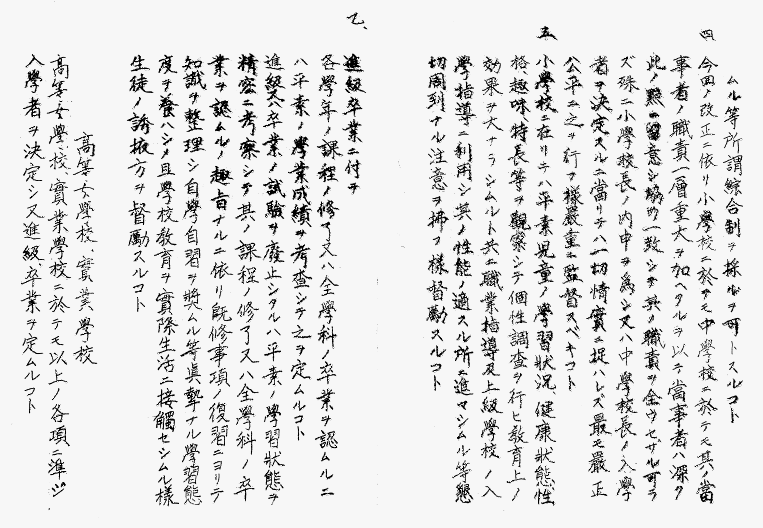 ムル等所謂綜合制ヲ採ルヲ可トスルコト
四 今回ノ改正ニ依リ小學校ニ於テモ中學校ニ於テモ其ノ當
事者ノ職責一層重大ヲ加ヘタルヲ以テ當事者ハ深ク
此ノ點ニ留意シ協力一致シテ其ノ職責ヲ全ウセザル可ラ
ズ殊ニ小學校長ノ内申ヲ爲シ又ハ中學校長ノ入學
者ヲ決定スルニ當リテハ一切情實ニ捉ハレズ最モ嚴正
公平ニ之ヲ行フ樣嚴重ニ監督スベキコト
五 小學校ニ在リテハ平素児童ノ學習狀况、健康狀態、性
格、趣味、特長等ヲ觀察シテ個性調査ヲ行ヒ教育上ノ
効果ヲ大ナラシムルト共ニ職業指導及上級學校ノ入
學指導ニ利用シ其ノ性能ノ適スル所ニ進マシムル等懇
切周到ナル注意ヲ拂フ樣督勵スルコト
乙、進級卒業ニ付テ
各學年ノ課程ノ修了又ハ全學科ノ卒業ヲ認ムルニ
ハ平素ノ學業成績ヲ考查シテ之ヲ定ムルコト
進級又ハ卒業ノ試驗ヲ廢止シタルハ平素ノ學習狀態ヲ
精密ニ考察シテ其ノ課程ノ修了又ハ全學科ノ卒
業ヲ認ムルノ趣旨ナルニ依リ既修事項ノ復習ニヨリテ
知識ヲ整理シ自學自習ヲ奬ムル等眞摯ナル學習態
度ヲ養ハシメ且學校教育ヲ實際生活ニ接觸セシムル樣
生徒ノ誘掖方ヲ督勵スルコト
高等女學校、實業學校
高等女學校、實業學校ニ於テモ以上ノ各項ニ準ジ
入學者ヲ決定シ又進級、卒業ヲ定ムルコト